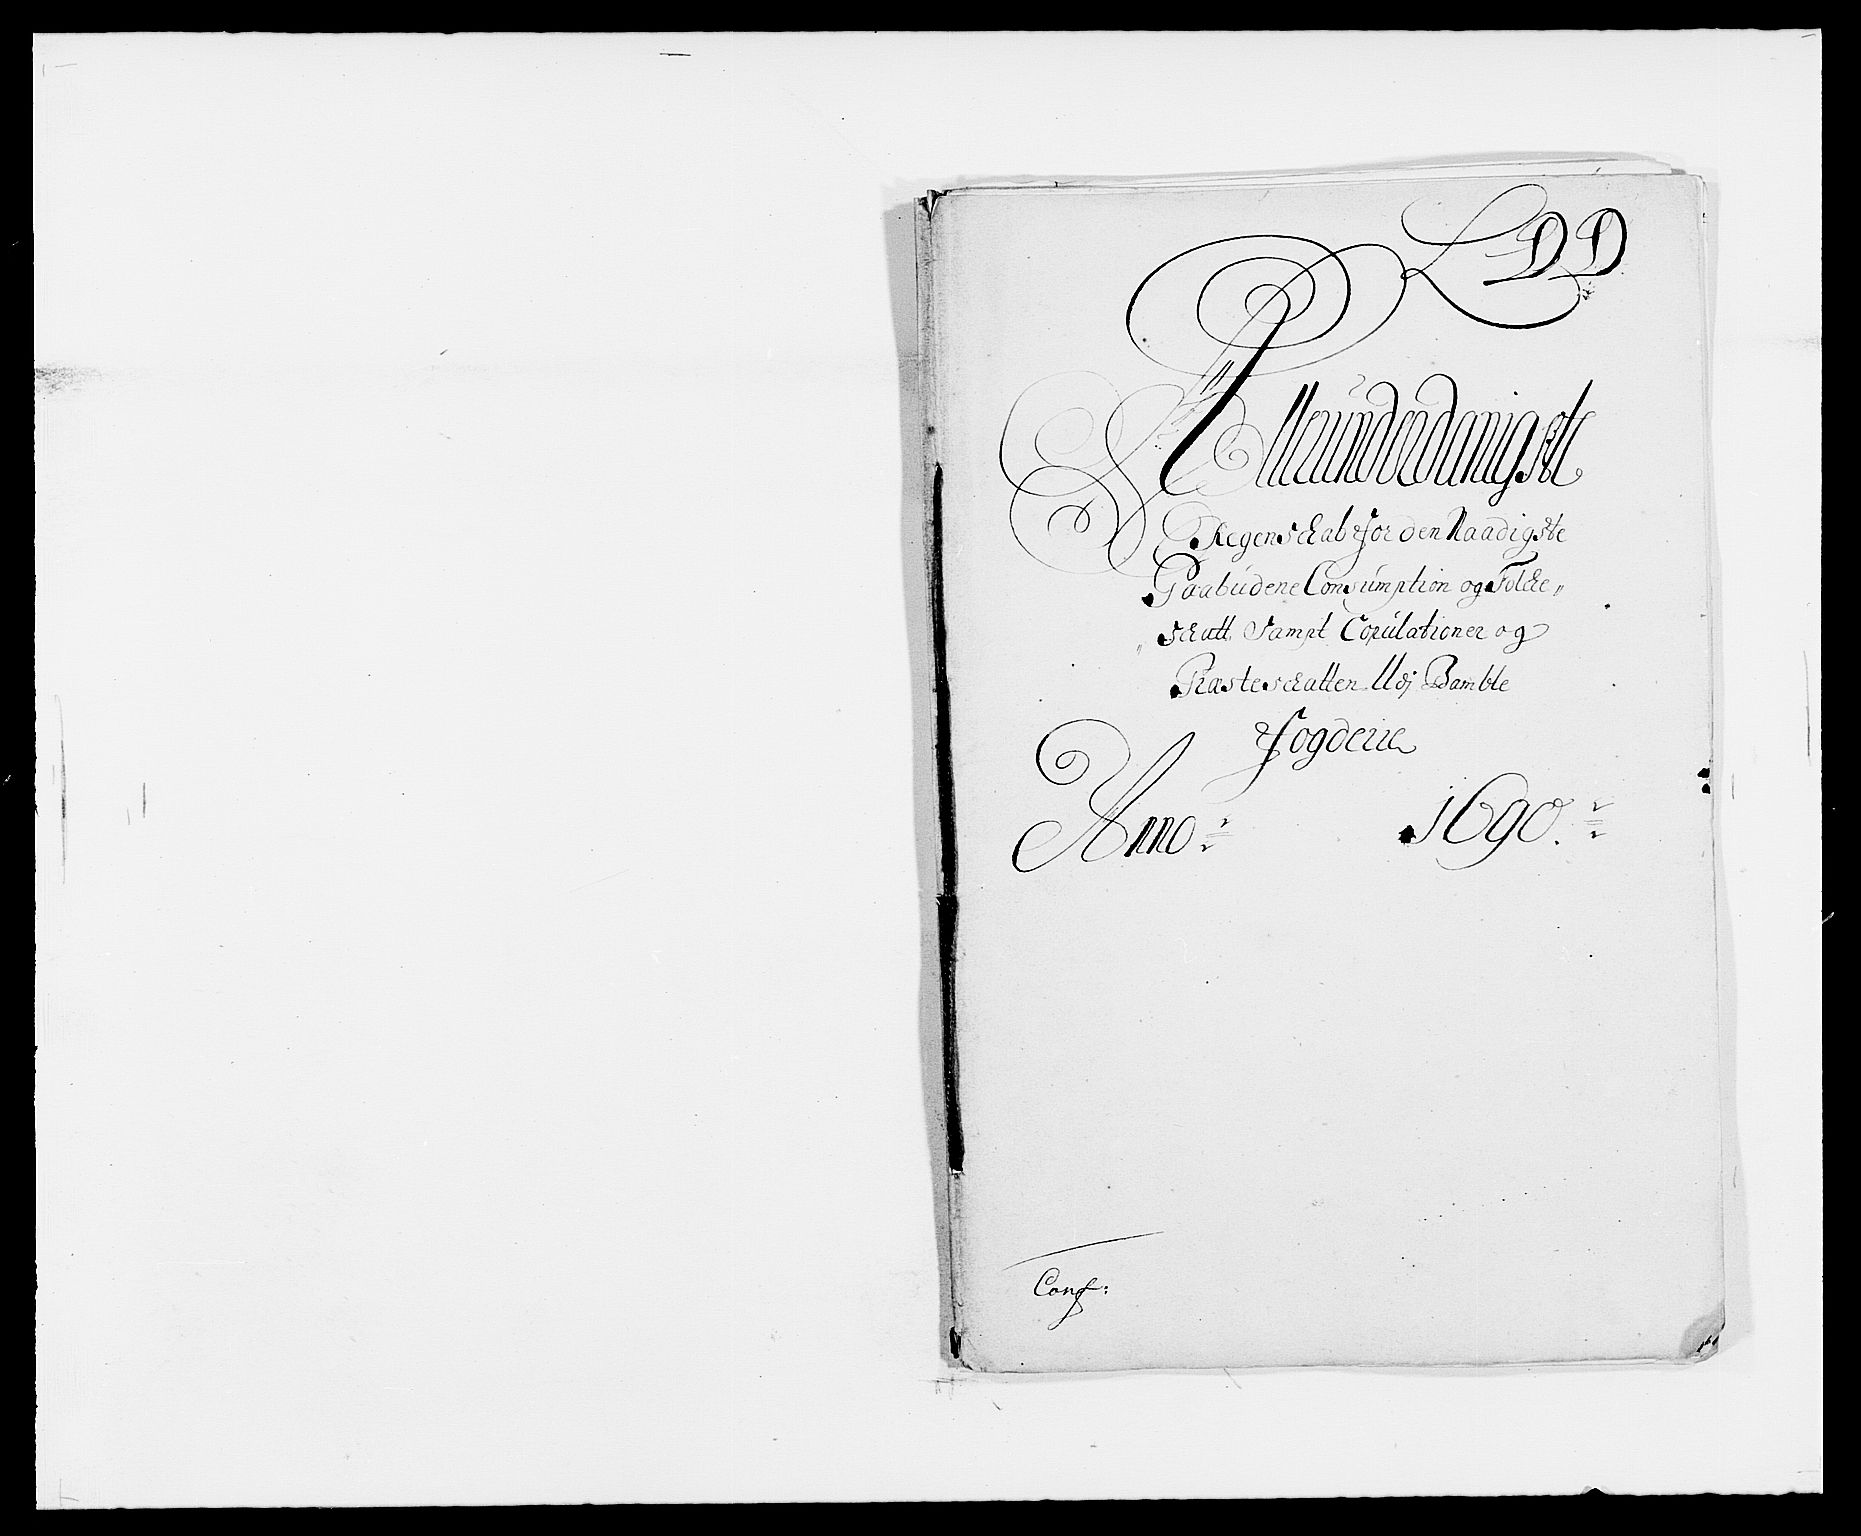 LDD
Alleründerdanigste
Regenschab for den Naadigste
Paabüdene Consümption og Folche„
„schatt, Sampt Copülationer og
Præsteschatten Udj Bamble
Fogderie
Anno 1690.
Conf: